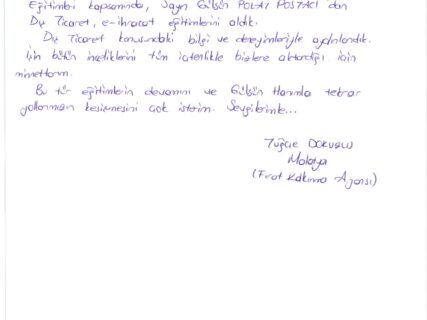 Eğitimleri kapsamında, Sayın Gülsün POLAT POSTACI'dan
Dış Ticaret, e-ihracat eğitimlerini aldık.
Dış Ticaret konusundaki bilgi ve deneyimleriyle aydınlandık.
İşin bütün inceliklerini tüm içtenlikle bizlere aktardığı için
minnettarım.
Bu tür eğitimlerin devamını ve Gülsün Hanımla tekrar
yollarımızın kesişmesini çok isterim. Sevgilerimle...
Tuğçe
Malatya
(Fırat Kalkınma Ajansı)